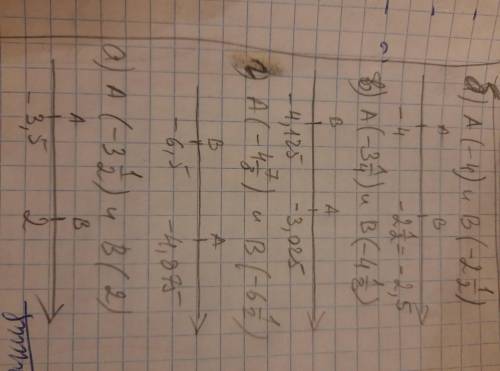 б) A(-4) и B(-2 1/2)
A B
-4 -2 1/2 = -2,5
в) A(-3 1/4) и B(4 1/8)
B A
-4,125 -3,025
г) A(-4 7/8) и B(-6 1/2)
B A
-6,5 -4,875
а) A(-3 1/2) и B(2)
A B
-3,5 2